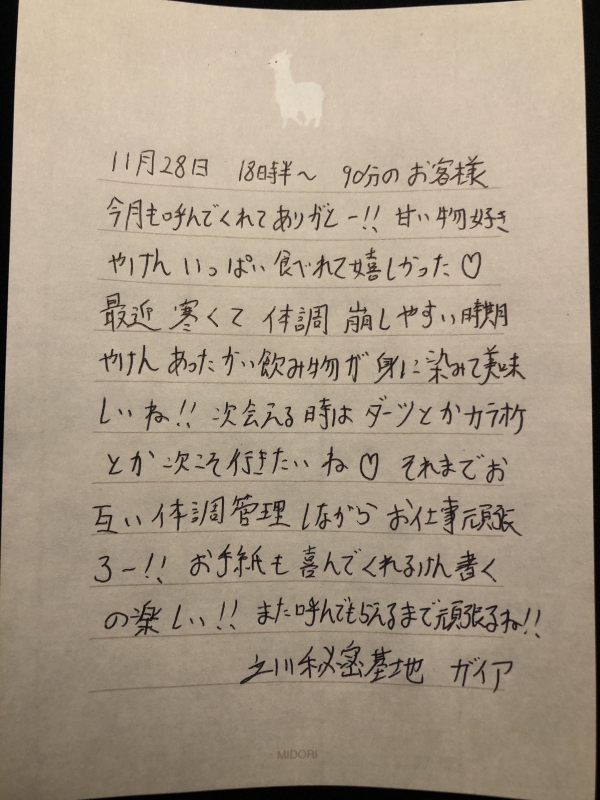 11月28日 18時半～ 90分のお客様
今月も呼んでくれてありがとー!! 甘い物好き
やけん いっぱい 食べれて嬉しかった♡
最近 寒くて 体調 崩しやすい時期
やけん あったかい飲み物が 身に染みて美味
しいね!! 次会える時は ダーツとかカラオケ
とか 次こそ行きたいね♡ それまでお
互い 体調管理しながら お仕事頑張
ろー!! お手紙も 喜んでくれるけん 書く
の楽しい!! また呼んでもらえるまで頑張るね!!
立川秘密基地 ガイア
MIDORI